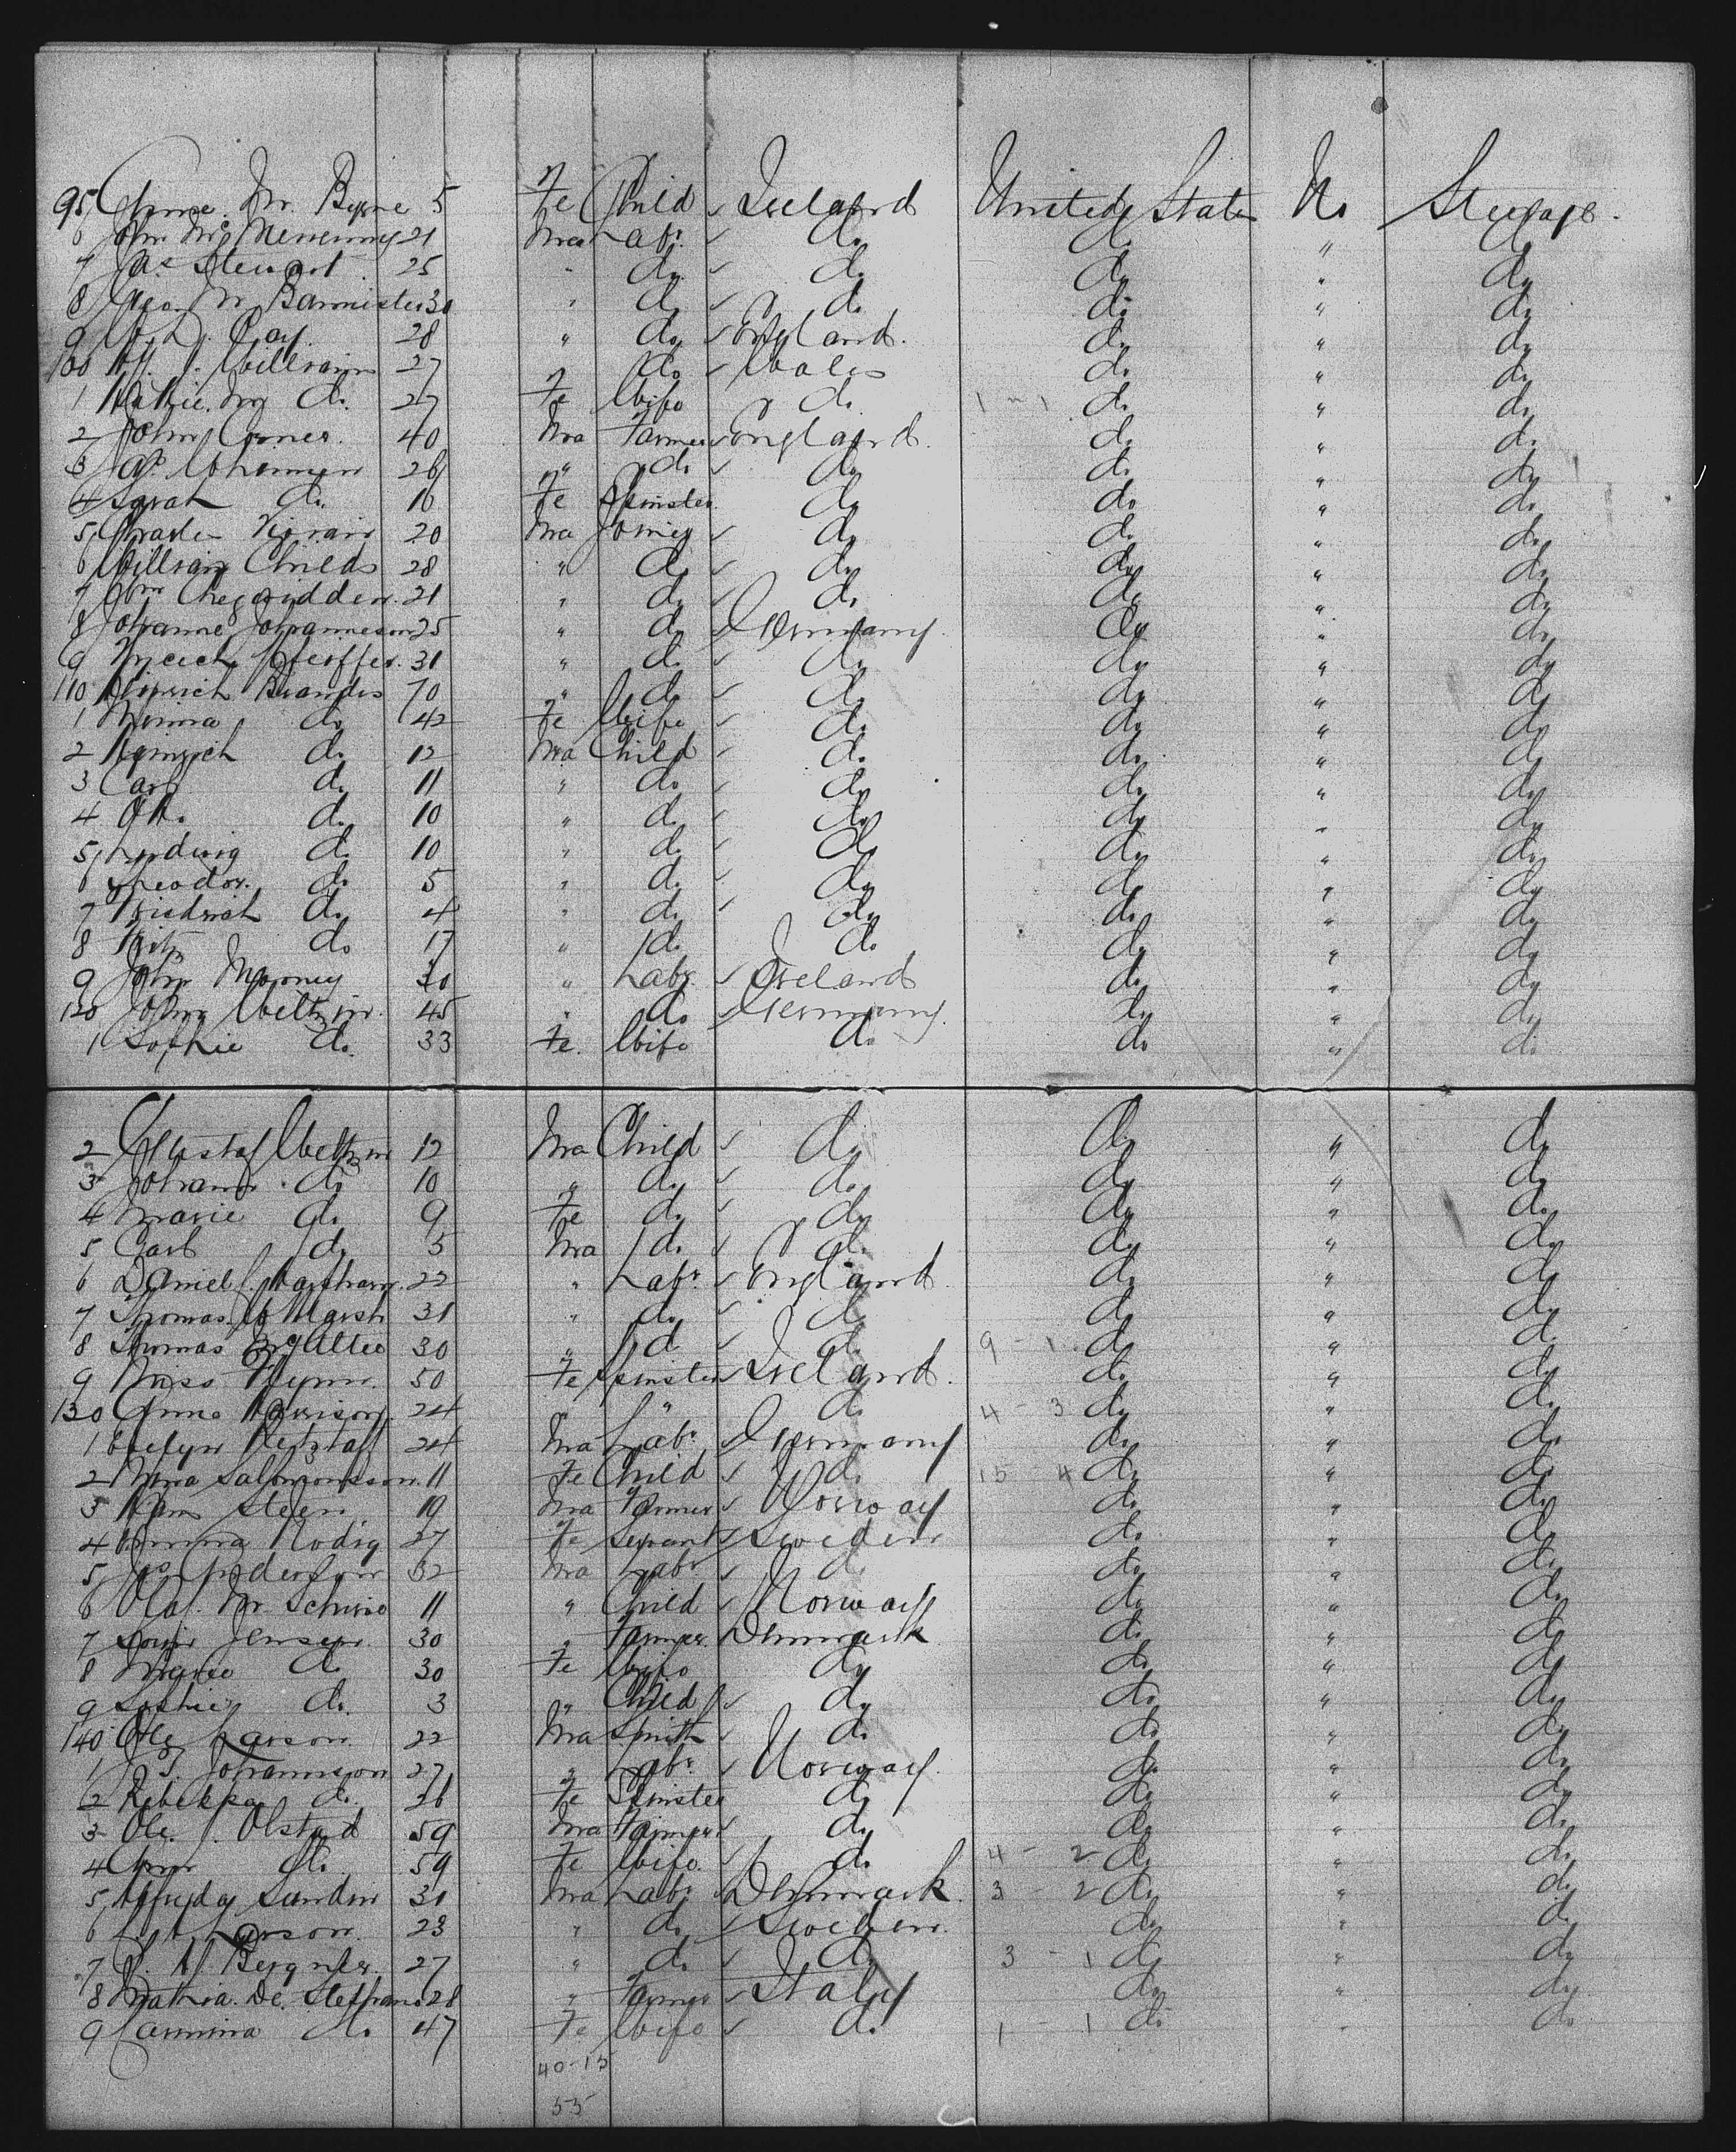 95 Anne M. Byrne 5 Fe Child ✓ Ireland United States No Steerage.
6 John Mc Menemny 21 Ma Labr. ✓ do do " do
7 Jas Stewart 25 " do ✓ do do " do
8 Geo. W. Bannister 30 " do ✓ do do " do
9 Day 28 " do ✓ England. do " do
100 Wm. J. Williams 27 " do ✓ Wales do " do
1 Mary do 27 Fe Wife do 1 - 1 do " do
2 John Corner. 40 Ma Farmer ✓ England. do " do
3 Jas 26 " do ✓ do do " do
4 Sarah do. 16 Fe Spinster. do do " do
5 Charles 20 Ma Joiner ✓ do do " do
6 William Childs 28 " do ✓ do do " do
7 Jno Chegwidden. 21 " do ✓ do do " do
8 Johanne Johannesson 25 " do ✓ Germany. do " do
9 Pfeiffer. 31 " do ✓ do do " do
110 Heinrich Brandes 70 " do ✓ do do " do
1 Minna do 42 Fe Wife ✓ do do " do
2 Heinrich do 12 Ma Child ✓ do do " do
3 Carl do 11 " do ✓ do do " do
4 Otto do 10 " do ✓ do do " do
5 Ludwig do 10 " do ✓ do do " do
6 Theodor. do 5 " do ✓ do do " do
7 Friedrich do 4 " do ✓ do do " do
8 Fritz do 17 " do do do " do
9 John Mooney 30 " Labr. ✓ Ireland do " do
120 Johna Weltzin. 45 " do ✓ Germany. do " do
1 Sophie do. 33 Fe. Wife do do " do
2 Gustaf Weltzin 12 Ma Child ✓ do do " do
3 Johann do 10 " do ✓ do do " do
4 Marie do 9 Fe do ✓ do do " do
5 Carl do 5 Ma do ✓ do do " do
6 Daniel J. 22 " Labr. ✓ England do " do
7 Thomas W Marsh 31 " do ✓ do do " do
8 Thomas McAltee 30 " do ✓ do 9 - 1 do " do
9 Miss Flynn. 50 Fe Spinster ✓ Ireland. do " do
130 Anne Harrison. 24 " " do 4 - 3 do " do
1 Evelyn 24 Ma Labr ✓ Germany do " do
2 Anna Salomonsson. 11 Fe Child ✓ do 15 - 4 do " do
3 Hans Steen. 19 Ma Farmer ✓ Norway do " do
4 Emma Rodig 27 Fe Servant ✓ Sweden do " do
5 Jos Anderson 32 Ma Labr ✓ do do " do
6 Olaf. M. 11 " Child ✓ Norway do " do
7 Jensen. 30 " Farmer. ✓ Denmark do " do
8 Marie do 30 Fe Wife do do " do
9 Sophie do. 3 " Child ✓ do do " do
140 Ole Larson. 22 Ma Smith ✓ do do " do
1 J. S. Johannson 27 " Labr. ✓ Norway. do " do
2 Rebekka do. 26 Fe Spinster do do " do
3 Ole. J. Olstad 59 Ma Farmer ✓ do do " do
4 Ann do 59 Fe Wife. ✓ do 4 - 2 do " do
5 Sundin 31 Ma Labr ✓ Denmark. 3 - 2 do " do
6 Larson. 23 " do ✓ Sweden. do " do
7 Bergner. 27 " do ✓ do 3 - 1 do " do
8 Mathia. De. Steffano 28 " Farmer ✓ Italy do " do
9 Carmina do. 47 Fe Wife ✓ do 1 - 1 do " do
40-15
55